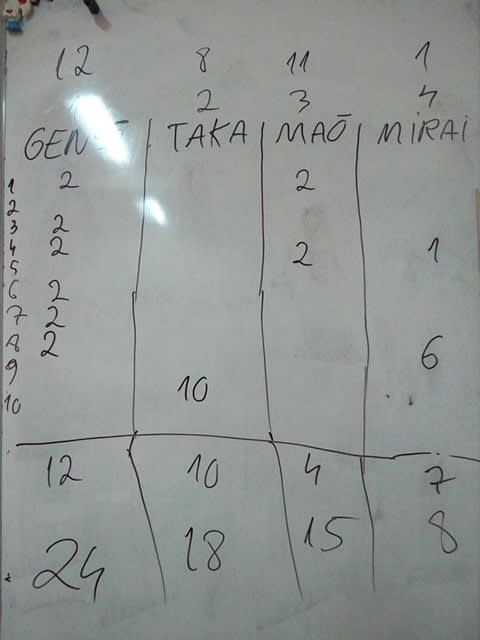 12 8 11 1
2 3 4
TAKA MAŌ MİRAI
1 2 2
2
3 2
4 2 2 1
5
6 2
7 2
8 2 6
9
10 10
12 10 4 7
24 18 15 8